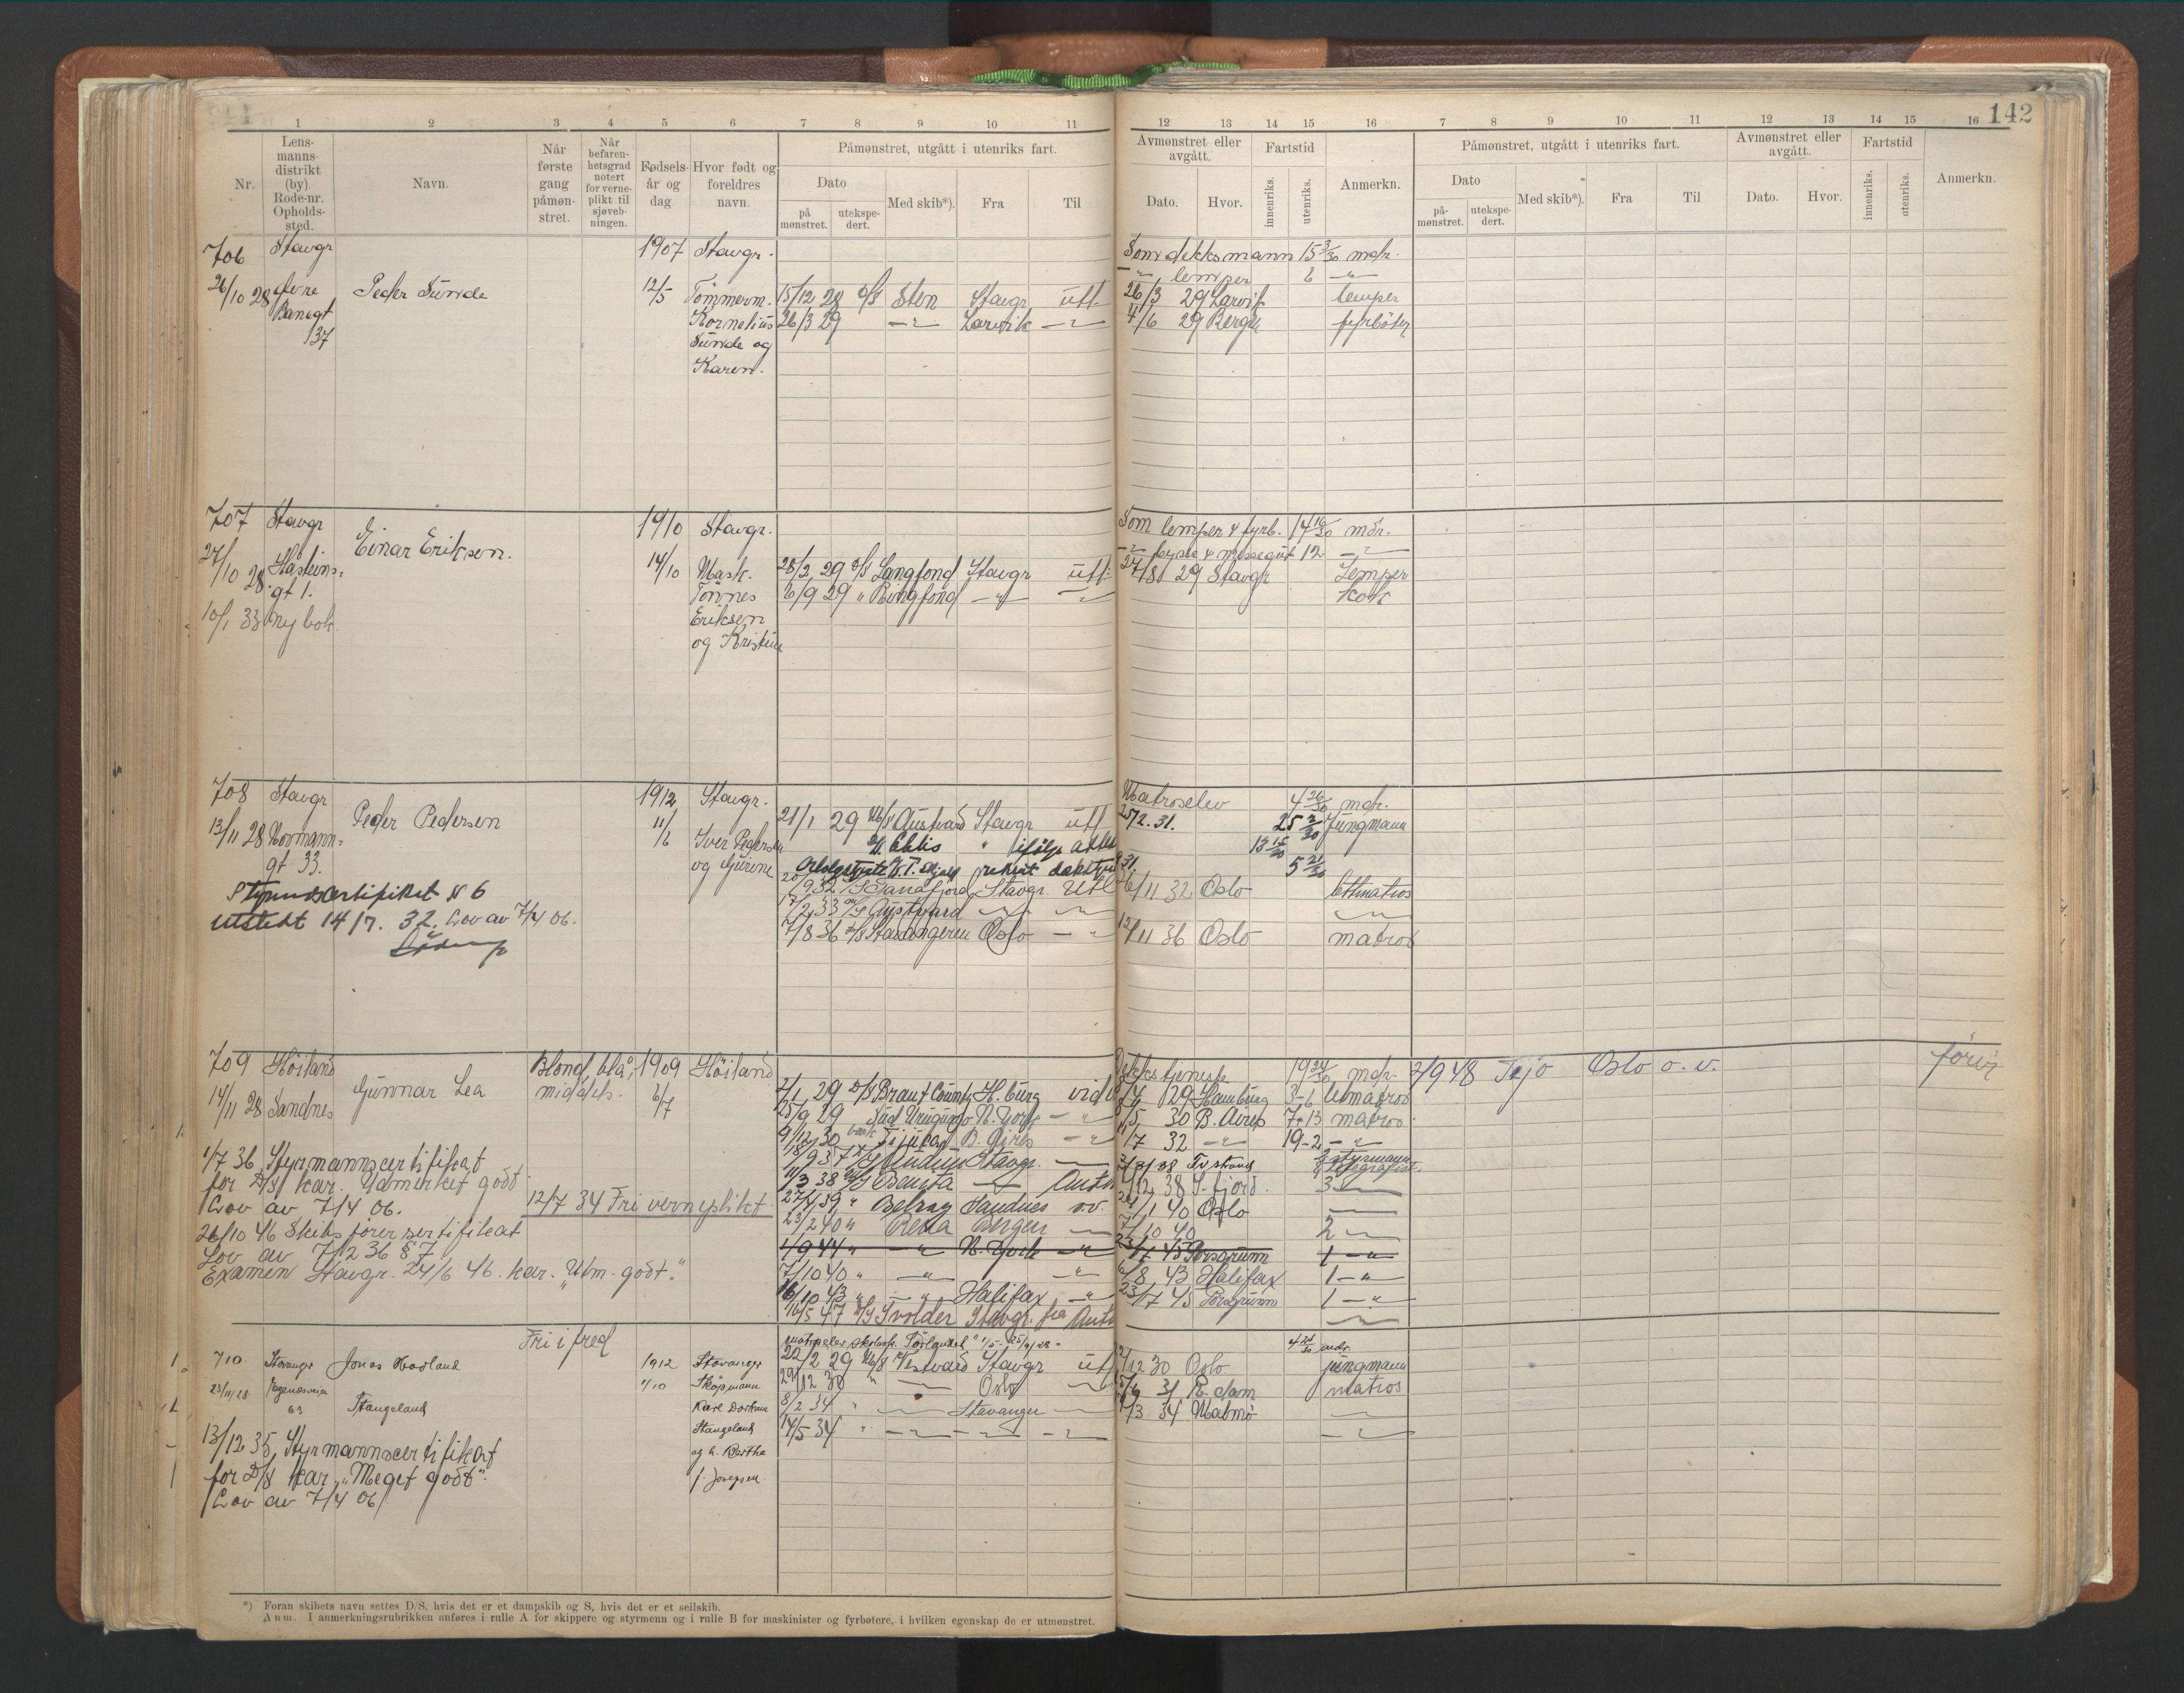 142
1 2 3 4 5 6 7 8 9 10 11 12 13 14 15 16 7 8 9 10 11 12 13 14 15 16
Nr.
Lens-
manns-
distrikt
(by)
Rode-nr.
Opholds-
sted.
Navn.
Når
første
gang
påmøn-
stret.
Når
befaren-
hetsgrad
notert
for verne-
plikt til
sjøveb-
ningen.
Fødsels-
år og
dag
Hvor født og
foreldres
navn.
Påmønstret, utgått i utenriks fart.
Dato
på
mønstret.
utekspe-
dert.
Med skib*).
Fra
Til
Avmønstret eller
avgått.
Dato.
Hvor.
Fartstid
innenriks.
utenriks.
Anmerkn.
Påmønstret, utgått i utenriks fart.
Dato
på-
mønstret.
utekspe-
dert.
Med skib*).
Fra
Til
Avmønstret eller
avgått.
Dato.
Hvor.
Fartstid
innenriks.
utenriks.
Anmerkn.
706 Stavgr 1907 Stavgr. Som dekksmann 15 3/30 mdr.
" lemper 6 "
26/10 28 Peder Sunde 12/5 Tømmerm. 15/12 28 D/S Sten Stavgr utl. 26/3 29 Larvik lemper
37 Kornelius 26/3 29 " Larvik " 4/6 29 Bergen fyrbøter
Sunde og
Karen.
707 Stavgr Einar Eriksen. 1910 Stavgr. Som lemper & fyrb. 14 16/30 mdr.
27/10 28 14/10 Mask. 28/2 29 D/S Langfond Stavgr utl. 27/8 29 Stavgr Lemper
gt 1. Tønnes 6/9 29 " Ringfond " " Kokk
10/1 33 ny bok. Eriksen
og Kristine
708 Stavgr Peder Pedersen 1912 Stavgr. Matroselev 4 26/30 mdr.
13/11 28 Normann- 11/6 Iver Pedersen 21/1 29 M/S Austvard Stavgr utl 25/2. 31. 25 2/30 Jungmann
gt 33. og Gurine
Styrmdsertifikat N 6
utstedt 14/7. 32. Lov av 7/4 06.
Sandfjord Stavgr. Utl 6/11 32 Oslo lettmatros
17/2 33 M/S Austvard " "
7/8 36 Stavangeren Oslo " 12/11 36 Oslo matros
709 Høiland Gunnar Lea Blond, blå, 1909 Høiland Dekkstjeneste 19 24/30 mdr. 2/9 48 Tejo Oslo o. v. fører
14/11 28 Sandnes middels. 6/7 2/1 29 D/S Brant County H.burg vid 29 Hamburg 3-6 letmatros
25/9 29 Sud Uruguayo N. York " 30 B. Aires 7-13 matros
9/12 30 bark Tijuca B. Aires " 32 " 19-2 "
1/7 36 Styrmannscertifikat
for D/S kar. Utmerket godt
Lov av 7/4 06.
12/7 34 Fri verneplikt.
26/10 46 Skibsførersertifikat
Lov av 7/2 36 § 7
Examen Stavgr. 24/6 46. kar. "Utm. godt."
11/3 38 M/S Benita " 12 38 S.fjord 3 "
27/4 39 " Belray Sandnes o.v. 1 40 Oslo "
23/2 40 " Bergen " 10 40 2 "
1/9 44 " " N. York " 23/7 45 Porsgrunn 1 "
7/10 40 " " " 6/8 43 Halifax 1 "
16/10 43 " " Halifax " 23/7 45 Porsgrunn 1 "
16/5 47 D/S Svolder Stavgr. fra Antw "
Fri i fred 4 24/30 mdr.
710 Stavanger Jonas Hodland 1912 Stavanger 22/2 29 M/S Vestvard Stavgr utl. 12 30 Oslo jungmann
23/11 28 1/10 Skipsmann 29/12 30 " " Oslo " 31 R.dam matros
63 Stangeland Karl 8/2 34 " " Stavanger " 3 34 Malmø "
Stangeland 14/5 34 " " " " "
og h. Bertha
f. Josefsen
13/12 35 Styrmannscertifikat
for D/S kar. "Meget godt".
Lov av 7/4 06
*) Foran skibets navn settes D/S, hvis det er et dampskib og S, hvis det er et seilskib.
Anm. I anmerkningsrubrikken anføres i rulle A for skippere og styrmenn og i rulle B for maskinister og fyrbøtere, i hvilken egenskap de er utmønstret.